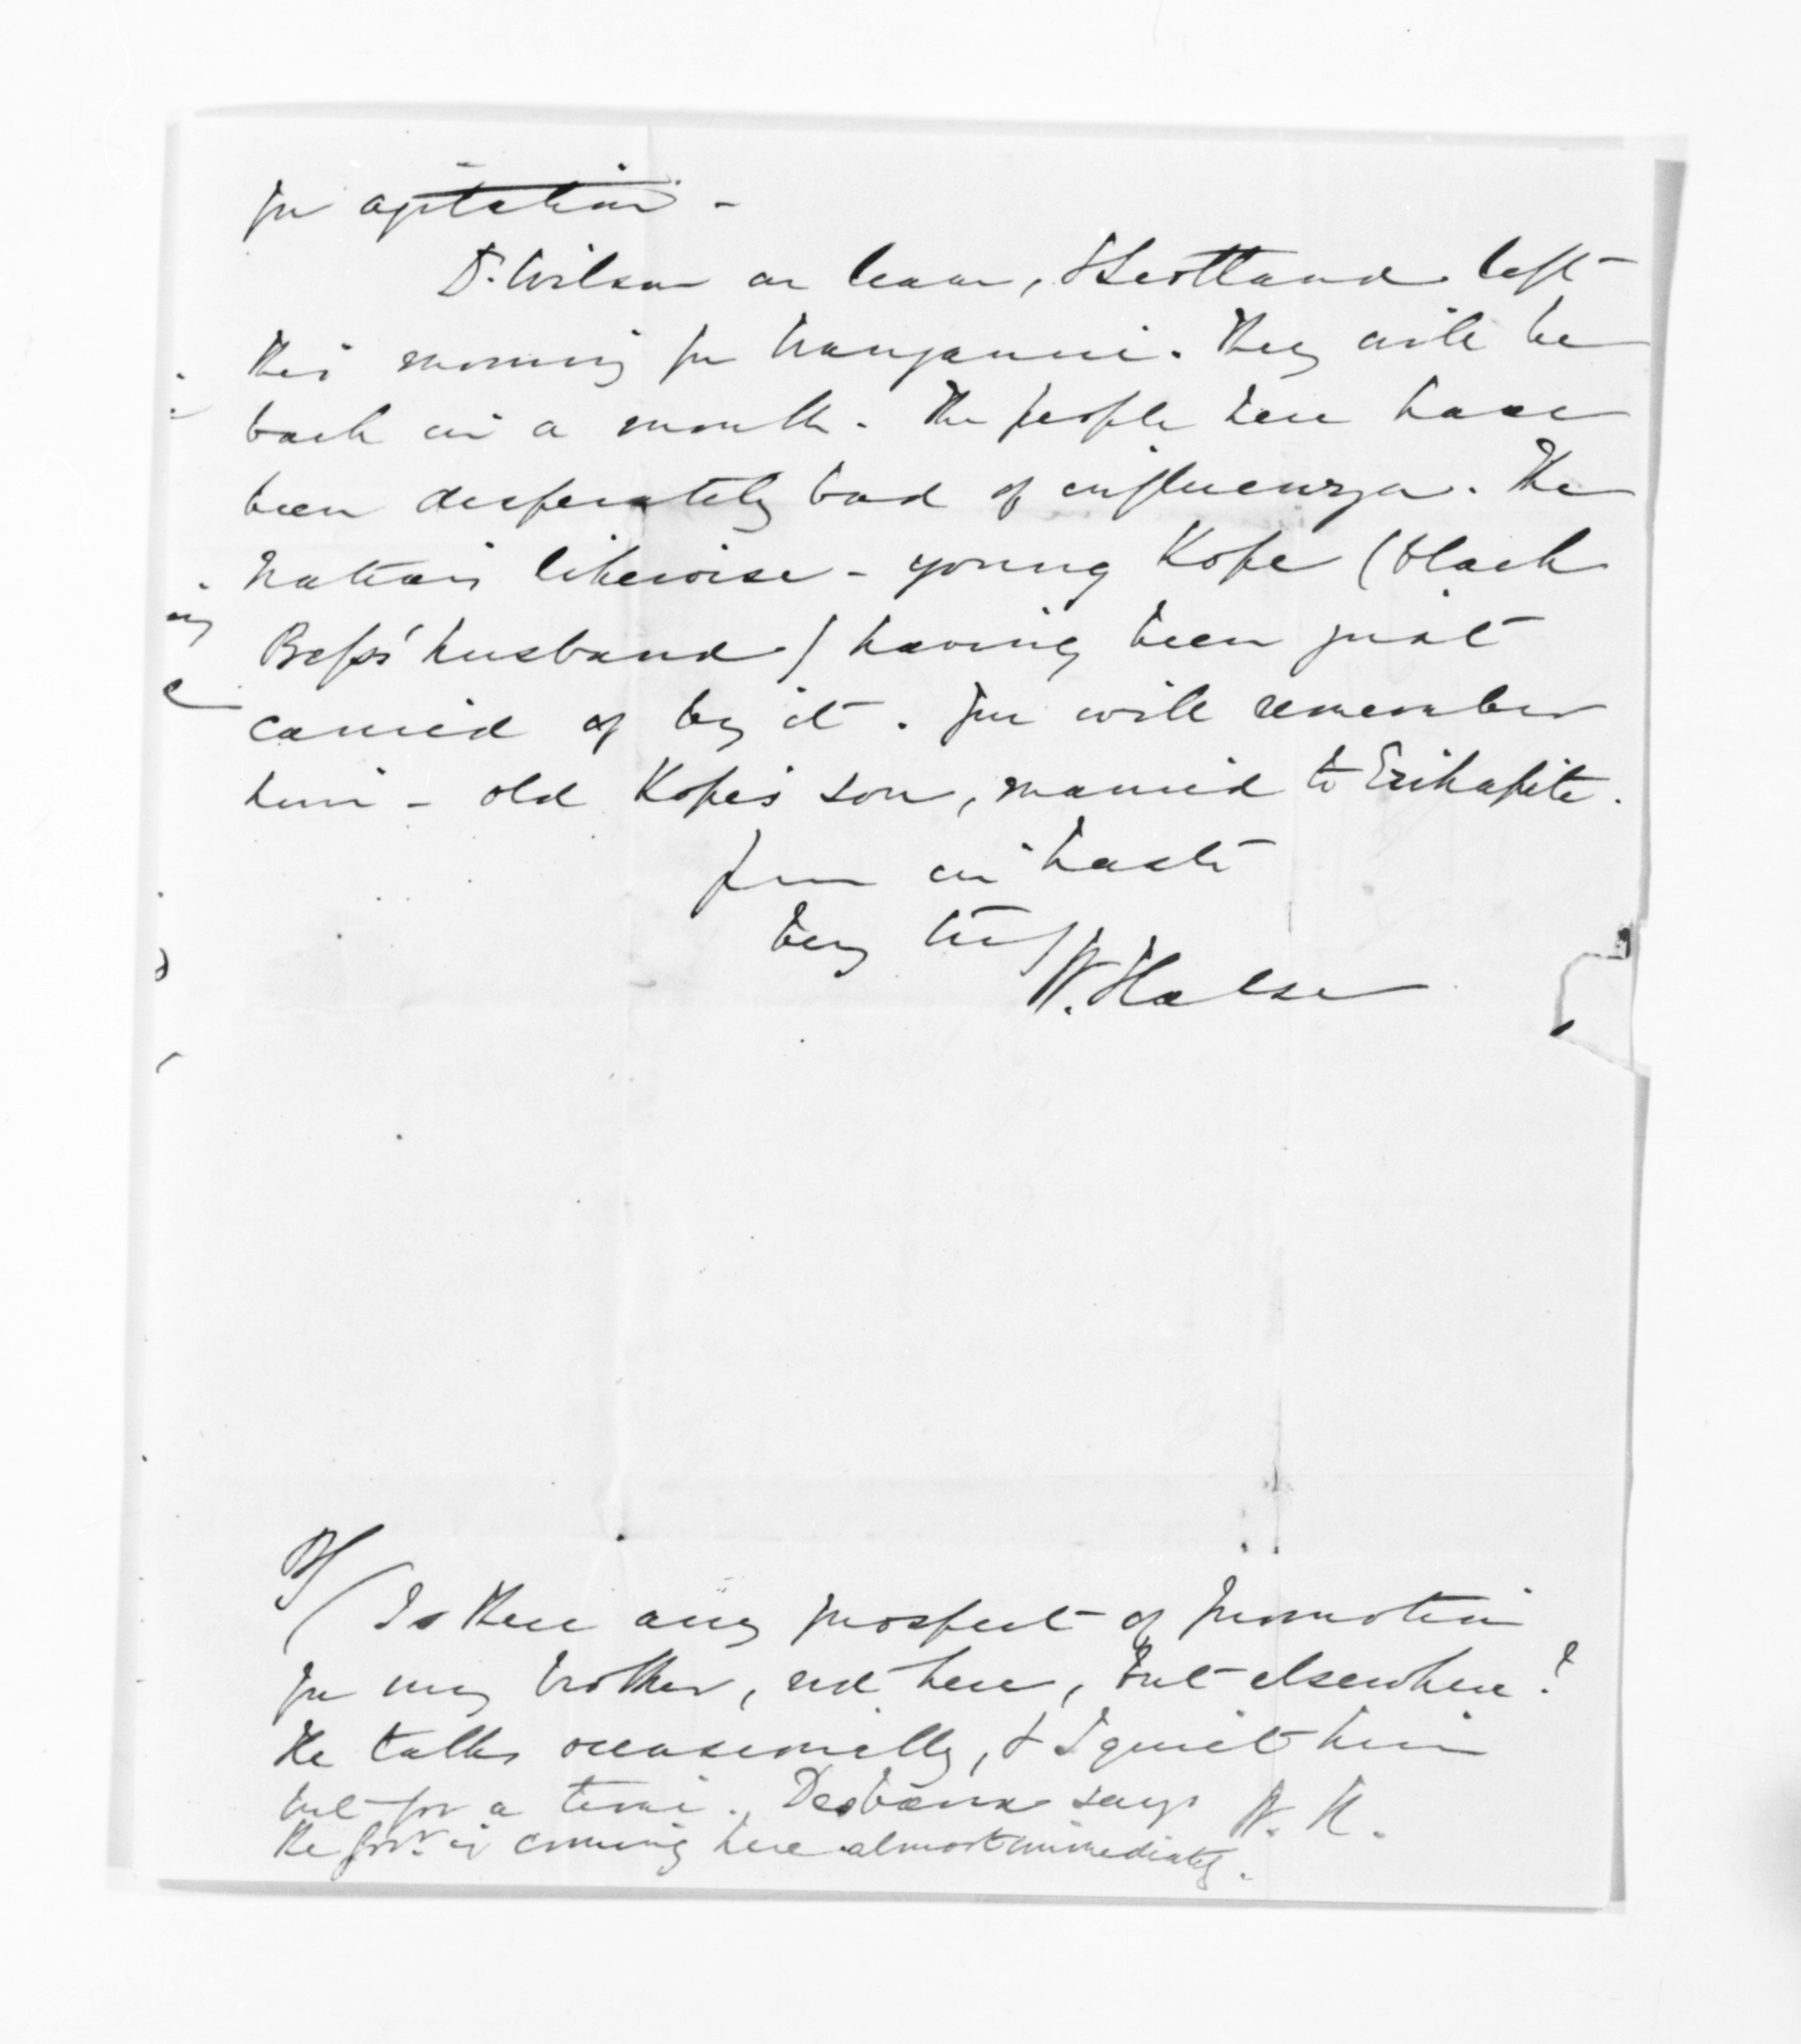 for agitation -
Dr. Wilson on leave, & Scotland left
this morning for Wanganui. They will be
back in a month. The people here have
been desperately bad of influenza. The
Natives likewise - young Kope (black
Bess' husband) having been just
carried of by it. You will remember
him - old Kope's son, married to Erihapite.
Yours in haste
Very truly
W. Halse
PS/ Is there any prospect of promotion
for my brother, not here, but elsewhere?
He talks occasionally, & I quiet him
but for a time. Deobard says W. H.
the Govr. is coming here almost immediately.